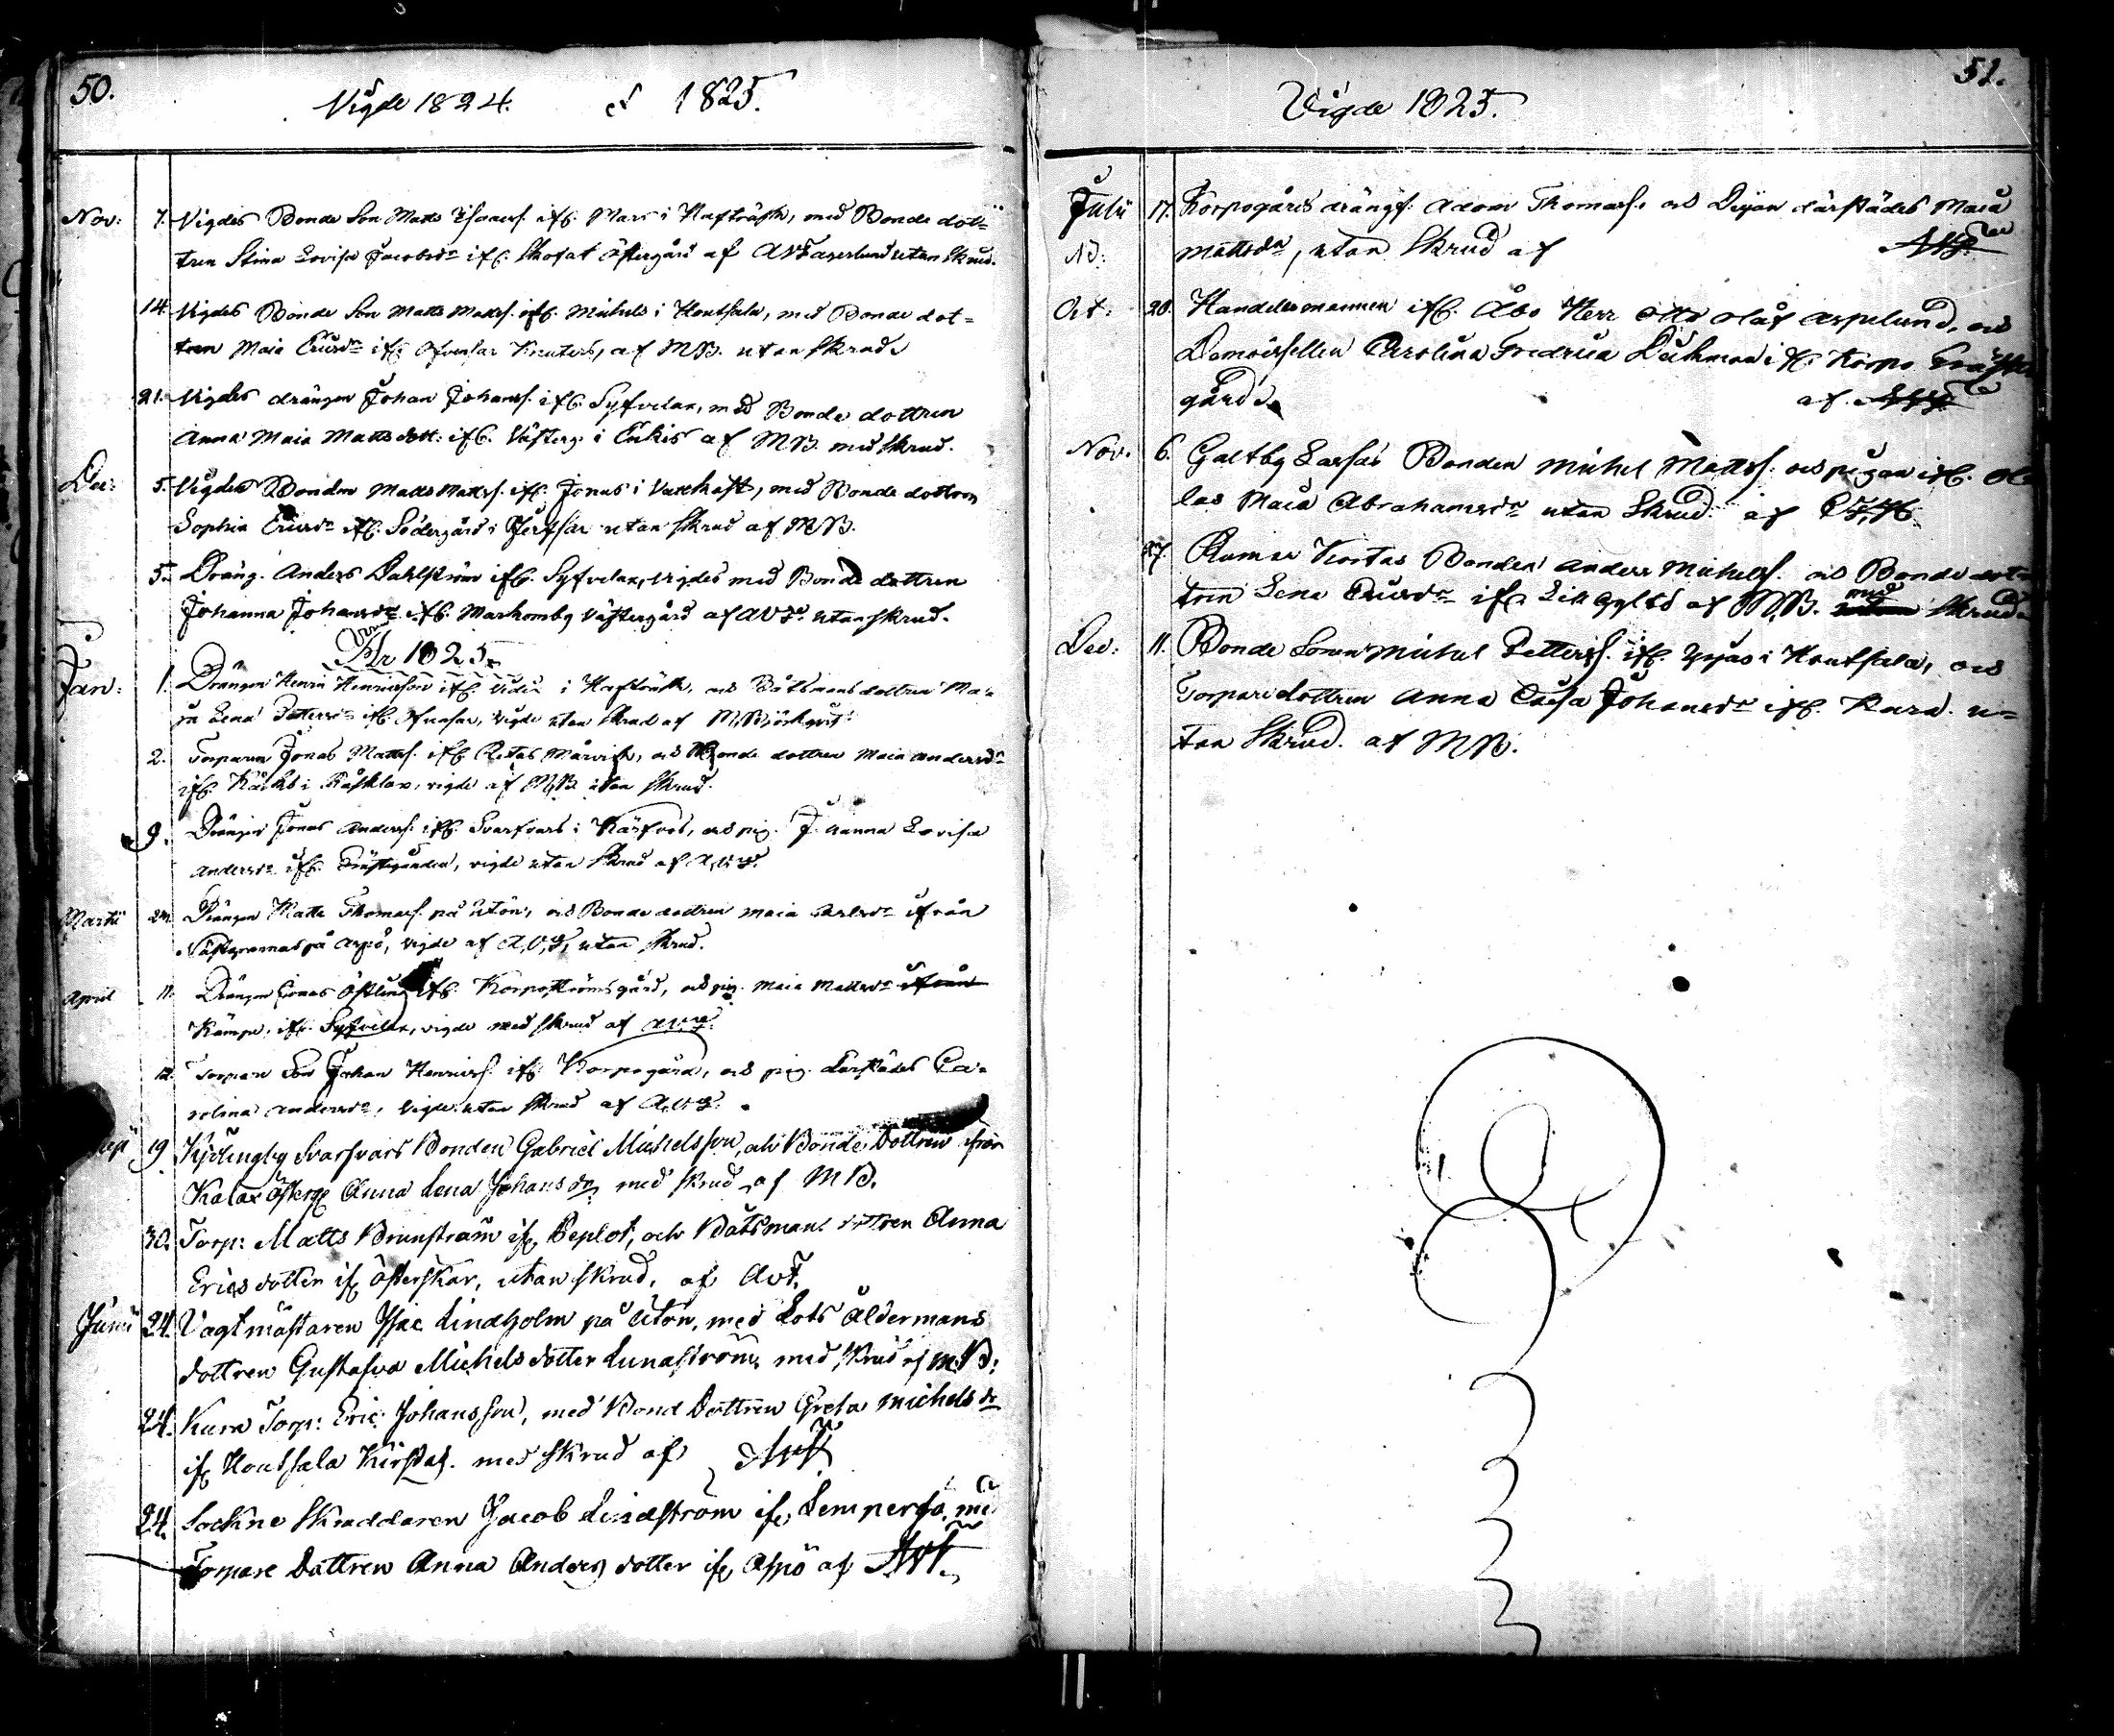 50.
Vigde 1824. et 1825.
Nov: 7. Vigdes Bonde Son Matts Isacss. ifr. Mars i Hafträsk, med Bonde dot=
tren Stina Lovisa Jacobsdr ifr. Skofat Östergård af AVFagerlund utan Skrud.
14. Vigdes Bonde Son Matts Matss. ifr. Michels i Houtsala, med Bonde dot=
tren Maia Ericsdr ifr. Ofvensar Knuters, af MB. utan skrud.
21. Vigdes drängen Johan Johanss. ifr. Syfvelax, med Bonde dottren
Anna Maia Matts dott: ifr. Västerg. i Enkis af MB. med skrud.
Dec: 5. Vigdes Bonden Matts Matts. ifr. Jonas i, med Bonde dottren
Sophia Ericsdr ifr. Södergård i utan skrud af MB.
5. Dräng. Anders Dahlström ifr. Syfvelax, vigdes med Bonde dottren
Johanna Johansdr ifr. Markomby Västergård af AVF. utan skrud.
År 1825.
Jan: 1. Drängen Henric Henricsson ifr. i Hafträsk, och Båtsmans dottren Ma=
ja Lena ifr. Ofvensar, vigde utan skrud af MBjörkqvist
2. Torparen Jonas Mattss. ifr. Retas, och Bonde dottren Maia Andersdr
ifr. i, vigde af MB utan skrud.
9. Drängen Jonas Anderss. ifr. Svarfvars i, och pig. Johanna Lovisa
Andersdr ifr. Prästgården, vigde utan skrud af A.V.F.
Martii 24. Drängen Matts Thomass. på Utön, och Bonde dottren Maia Carlsdr ifrån
på Aspö, vigde af A.V.F. utan skrud.
April 11. Drängen Jonas Östling ifr. Korpoströmsgård, och pig. Maia Mattsdr ifrån
Kämpe, ifr. Syfvelax, vigde med skrud af A.V.F.
12. Torpare Son Johan Henricss. ifr. Korpogård, och pig. därstädes Ca=
rolina Andersdr, vigde utan skrud af A.V.F.
19 Kyrlingby Svarfvars Bonden Gabriel Michelsson, och Bonde Dottren från
Kalax Österg. Anna Lena Johansdr, med skrud af MB.
30. Torp: Matts Brunström ifr. Peplot, och Båtsmans dottren Anna
Erics dotter ifr. Österskär, utan skrud, af AVF.
Junii 24. Vagtmästaren Isac Lindholm på Utön, med Lots Åldermans
dottren Gustafva Michels dotter Lundström, med skrud af MB.
24. Kura Torp: Eric Johansson, med Bond Dottren Greta Michelsdr
ifr. Houtsala Kirstas. med skrud af AVF
24. Sockne Skraddaren Jacob Lindström ifr. Lempersö, med
Torpare Dottren Anna Anders dotter ifr. Aspö af AVF.
51.
Vigde 1825.
Julii 17. Korpogårds drängs. Adam Thomass. och Dejan därstädes Maia
Mattsdr, utan Skrud af AVF
Oct: 20. Handelsmannen ifr. Åbo Herr Otto Olof Asplund, och
Demoisellen Carolina Fredrica ifr. Korpo Präste
gård. af AVF
Nov. 6. Galtby Larsas Bonden Michel Mattss. och pigan ifr. Ol
las Maia Abrahamsdr utan Skrud. af
27. Rumar Kortas Bonden Anders Michelss. och Bonde dot=
tren Lena Ericsdr ifr. Lill Gyltö af MB. med utan Skrud.
Dec: 11. Bonde Sonen Michel Petterss. ifr. i Houtsala, och
Torpare dottren Anna Caisa Johansdr ifr. Kura. u=
tan Skrud. af MB.